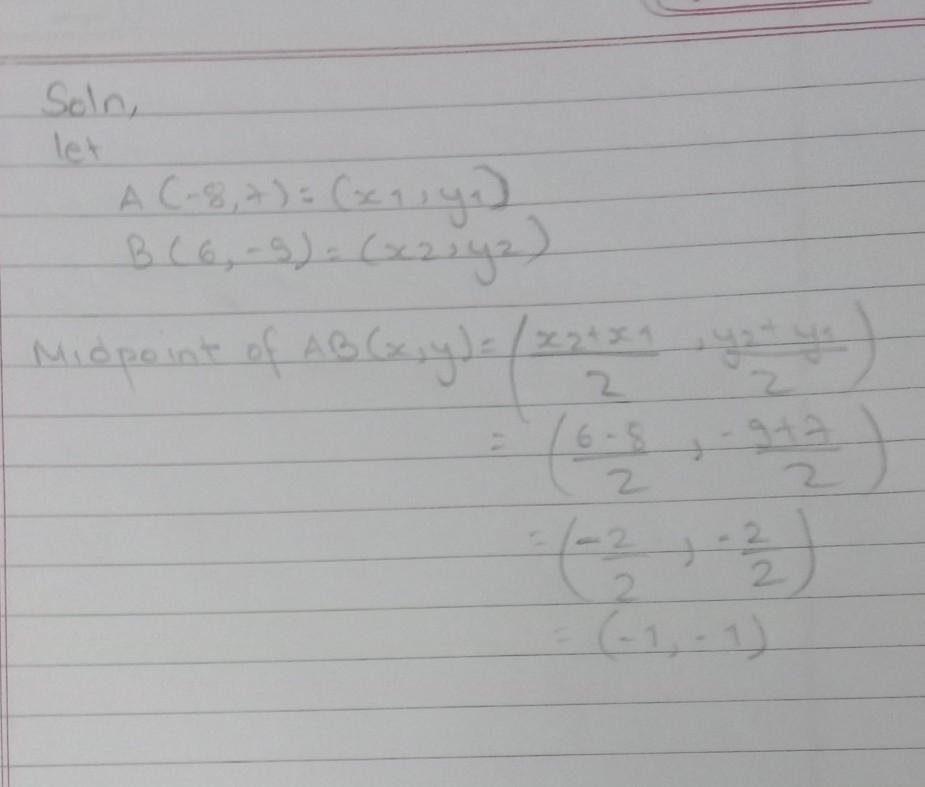 Soln,
let
A (-8,7) = (x1, y1)
B (6, -9) = (x2, y2)
Midpoint of AB (x,y) = (x2+x1/2, y2+y1/2)
= (6-8/2, -9+7/2)
= (-2/2, -2/2)
= (-1, -1)